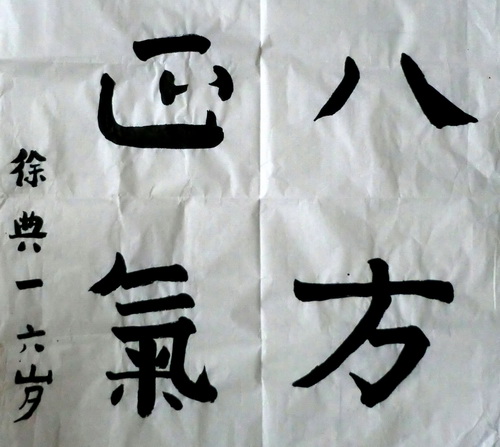 八方
正氣
徐典一六岁